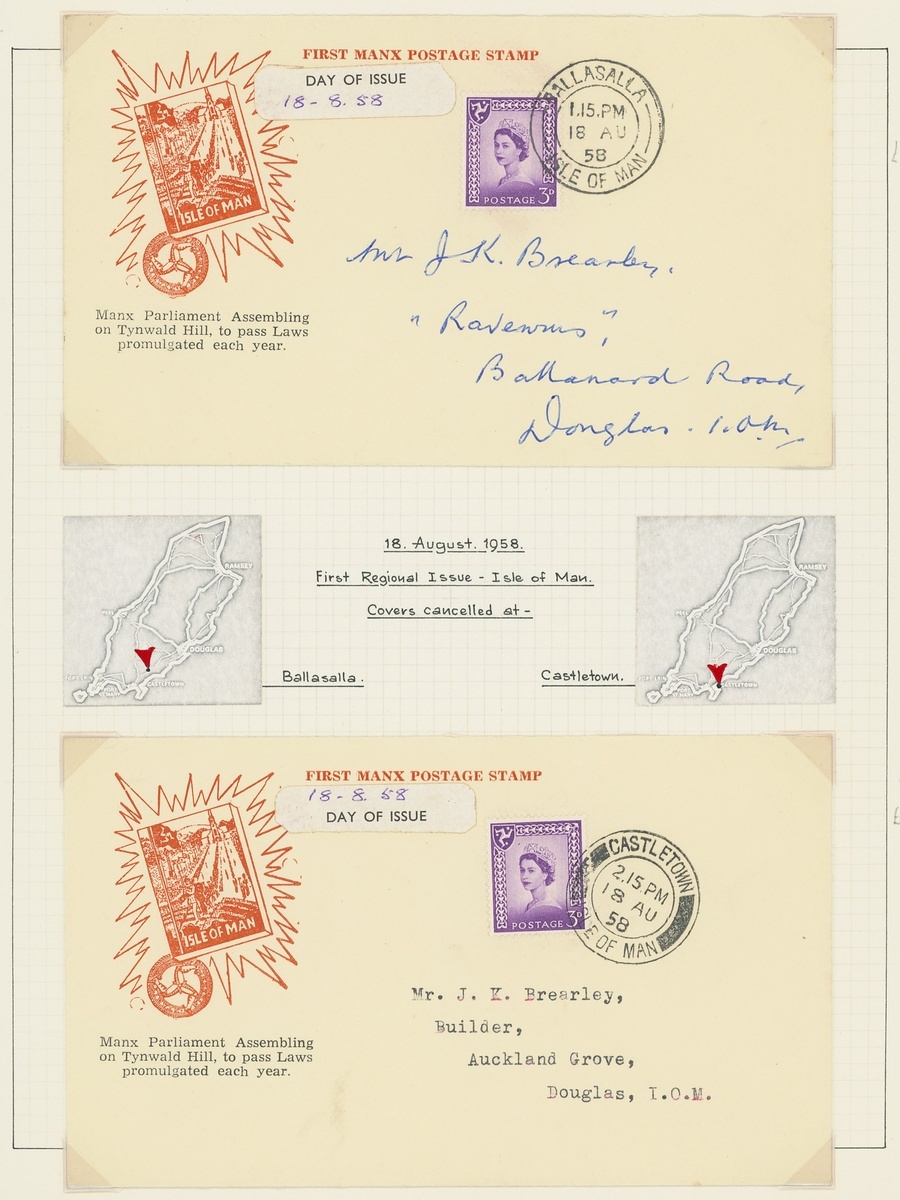 FIRST MANX POSTAGE STAMP
DAY OF ISSUE
18-8.58
ISLE OF MAN
POSTAGE 3D
BALLASALLA
1.15.PM
18 AU
58
ISLE OF MAN
Manx Parliament Assembling
on Tynwald Hill, to pass Laws
promulgated each year.
Mr J K. Brearley,
Ballanard Road,
Douglas. I.O.M.
18. August. 1958.
First Regional Issue - Isle of Man.
Covers cancelled at-
RAMSEY
DOUGLAS
CASTLETOWN
Ballasalla.
Castletown.
RAMSEY
DOUGLAS
CASTLETOWN
FIRST MANX POSTAGE STAMP
18-8.58
DAY OF ISSUE
ISLE OF MAN
POSTAGE 3D
CASTLETOWN
2.15.PM
18 AU
58
ISLE OF MAN
Manx Parliament Assembling
on Tynwald Hill, to pass Laws
promulgated each year.
Mr. J. K. Brearley,
Builder,
Auckland Grove,
Douglas, I.O.M.